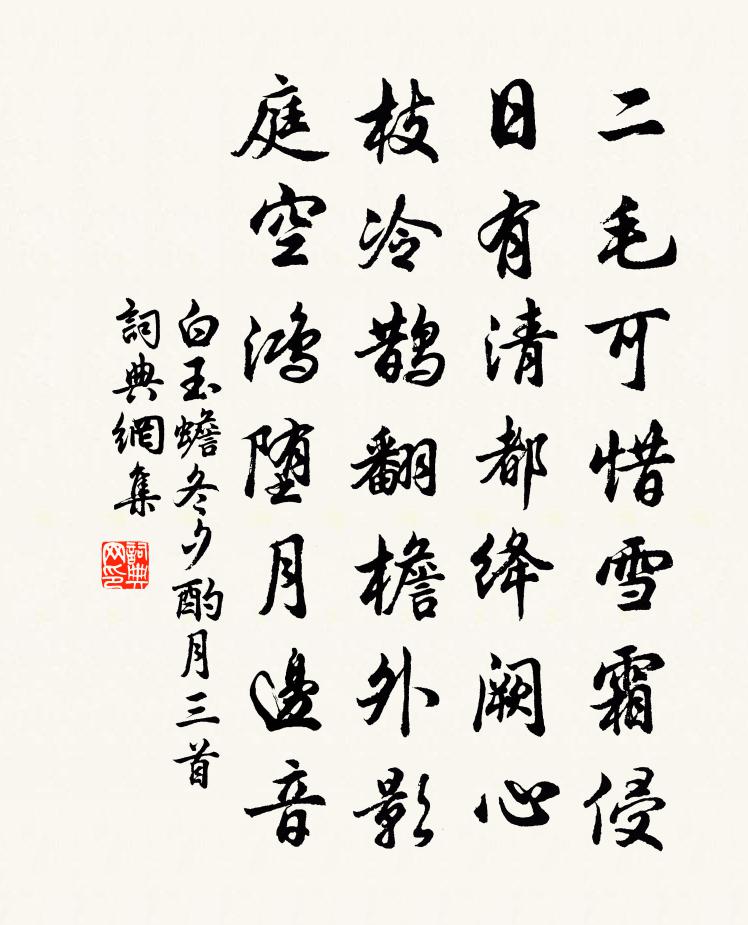 二毛可惜雪霜侵
日有清都绛阙心
枝冷鹊翻檐外影
庭空鸿堕月邊音
白玉蟾冬夕酌月三首
詞典網集
詞典网印